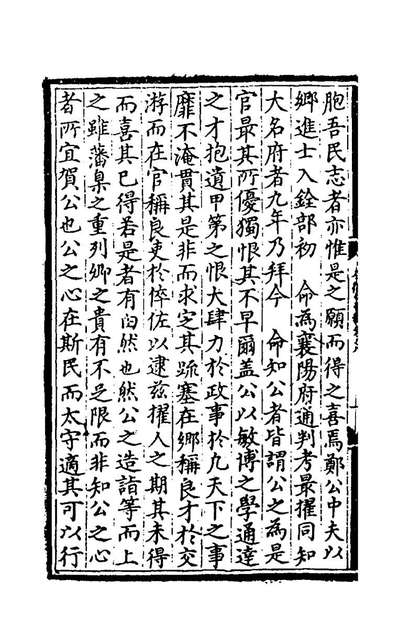 胞吾民志者亦惟是之願而得之喜焉鄭公中夫以
鄉進士入銓部初　命為襄陽府通判考最擢同知
大名府者九年乃拜今　命知公者皆謂公之為是
官最其所優獨恨其不早爾盖公以敏博之學通達
之才抱遺甲第之恨大肆力於政事於凡天下之事
靡不淹貫其是非而求定其䟽塞在鄉稱良才於交
游而在官稱良吏於倅佐以逮兹擢人之期其未得
而喜其已得若是者有由然也然公之造詣等而上
之雖藩臬之重列卿之貴有不足限而非知公之心
者所宜賀公也公之心在斯民而太守適其可以行